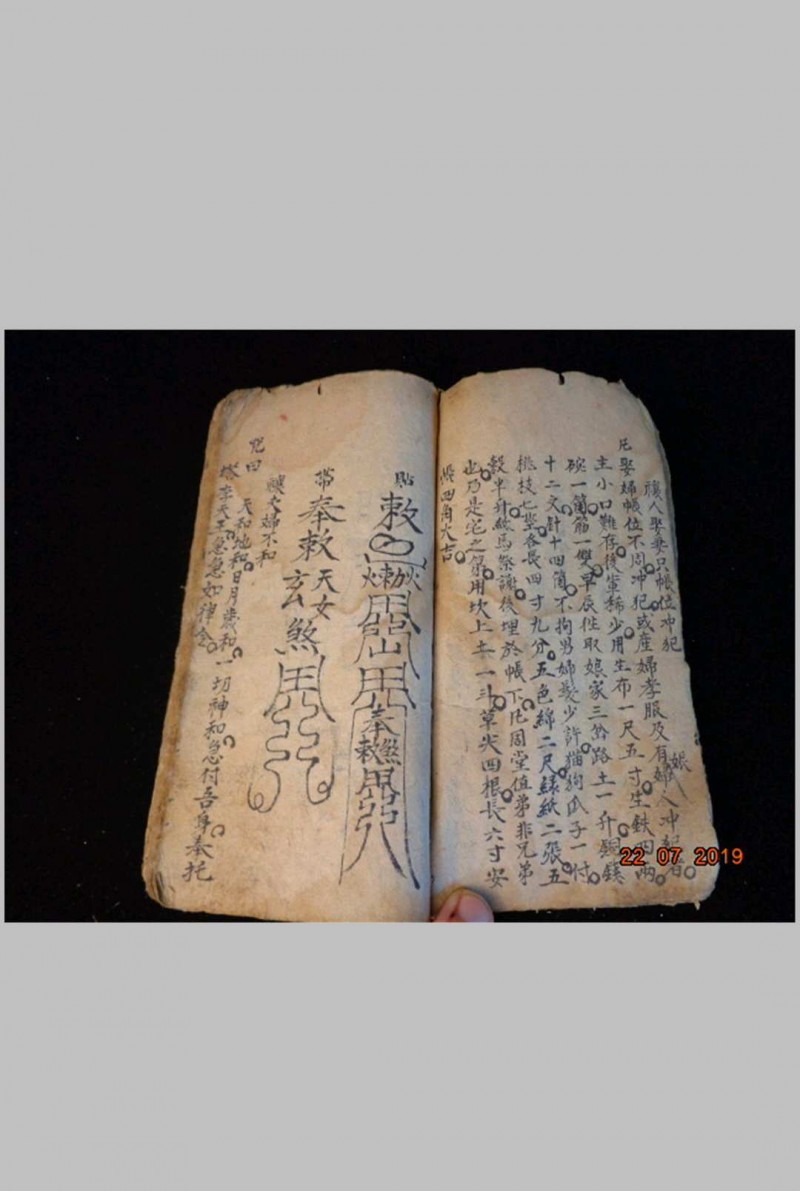 禳人娶妻只帳位冲犯
凡娶婦帳位不周冲犯或産婦孝服及有婦人冲犯者
娘
主小口難存後輩稀少用生布一尺五寸生鉄四两
碗一箇筋一雙甲辰徃取娘家三岔路土一升銅鏡
十二文針十四箇不拘男婦髮少許猫狗爪子一付
桃枝七莖各長四寸九分五色綿二尺綠紙二張五
穀半升紙馬祭謝後埋於帳下凡周堂值弟非兄弟
也乃是宅之弟用坎上土一斗草尖四根長六寸安
帳四角大吉
貼
敕
奉敕煞
帶
奉敕天女玄煞
禳夫婦不和
咒曰
天和地和日月歲和一切神和急付吾身奉托
塔李天王急急如律令
22 07 2019